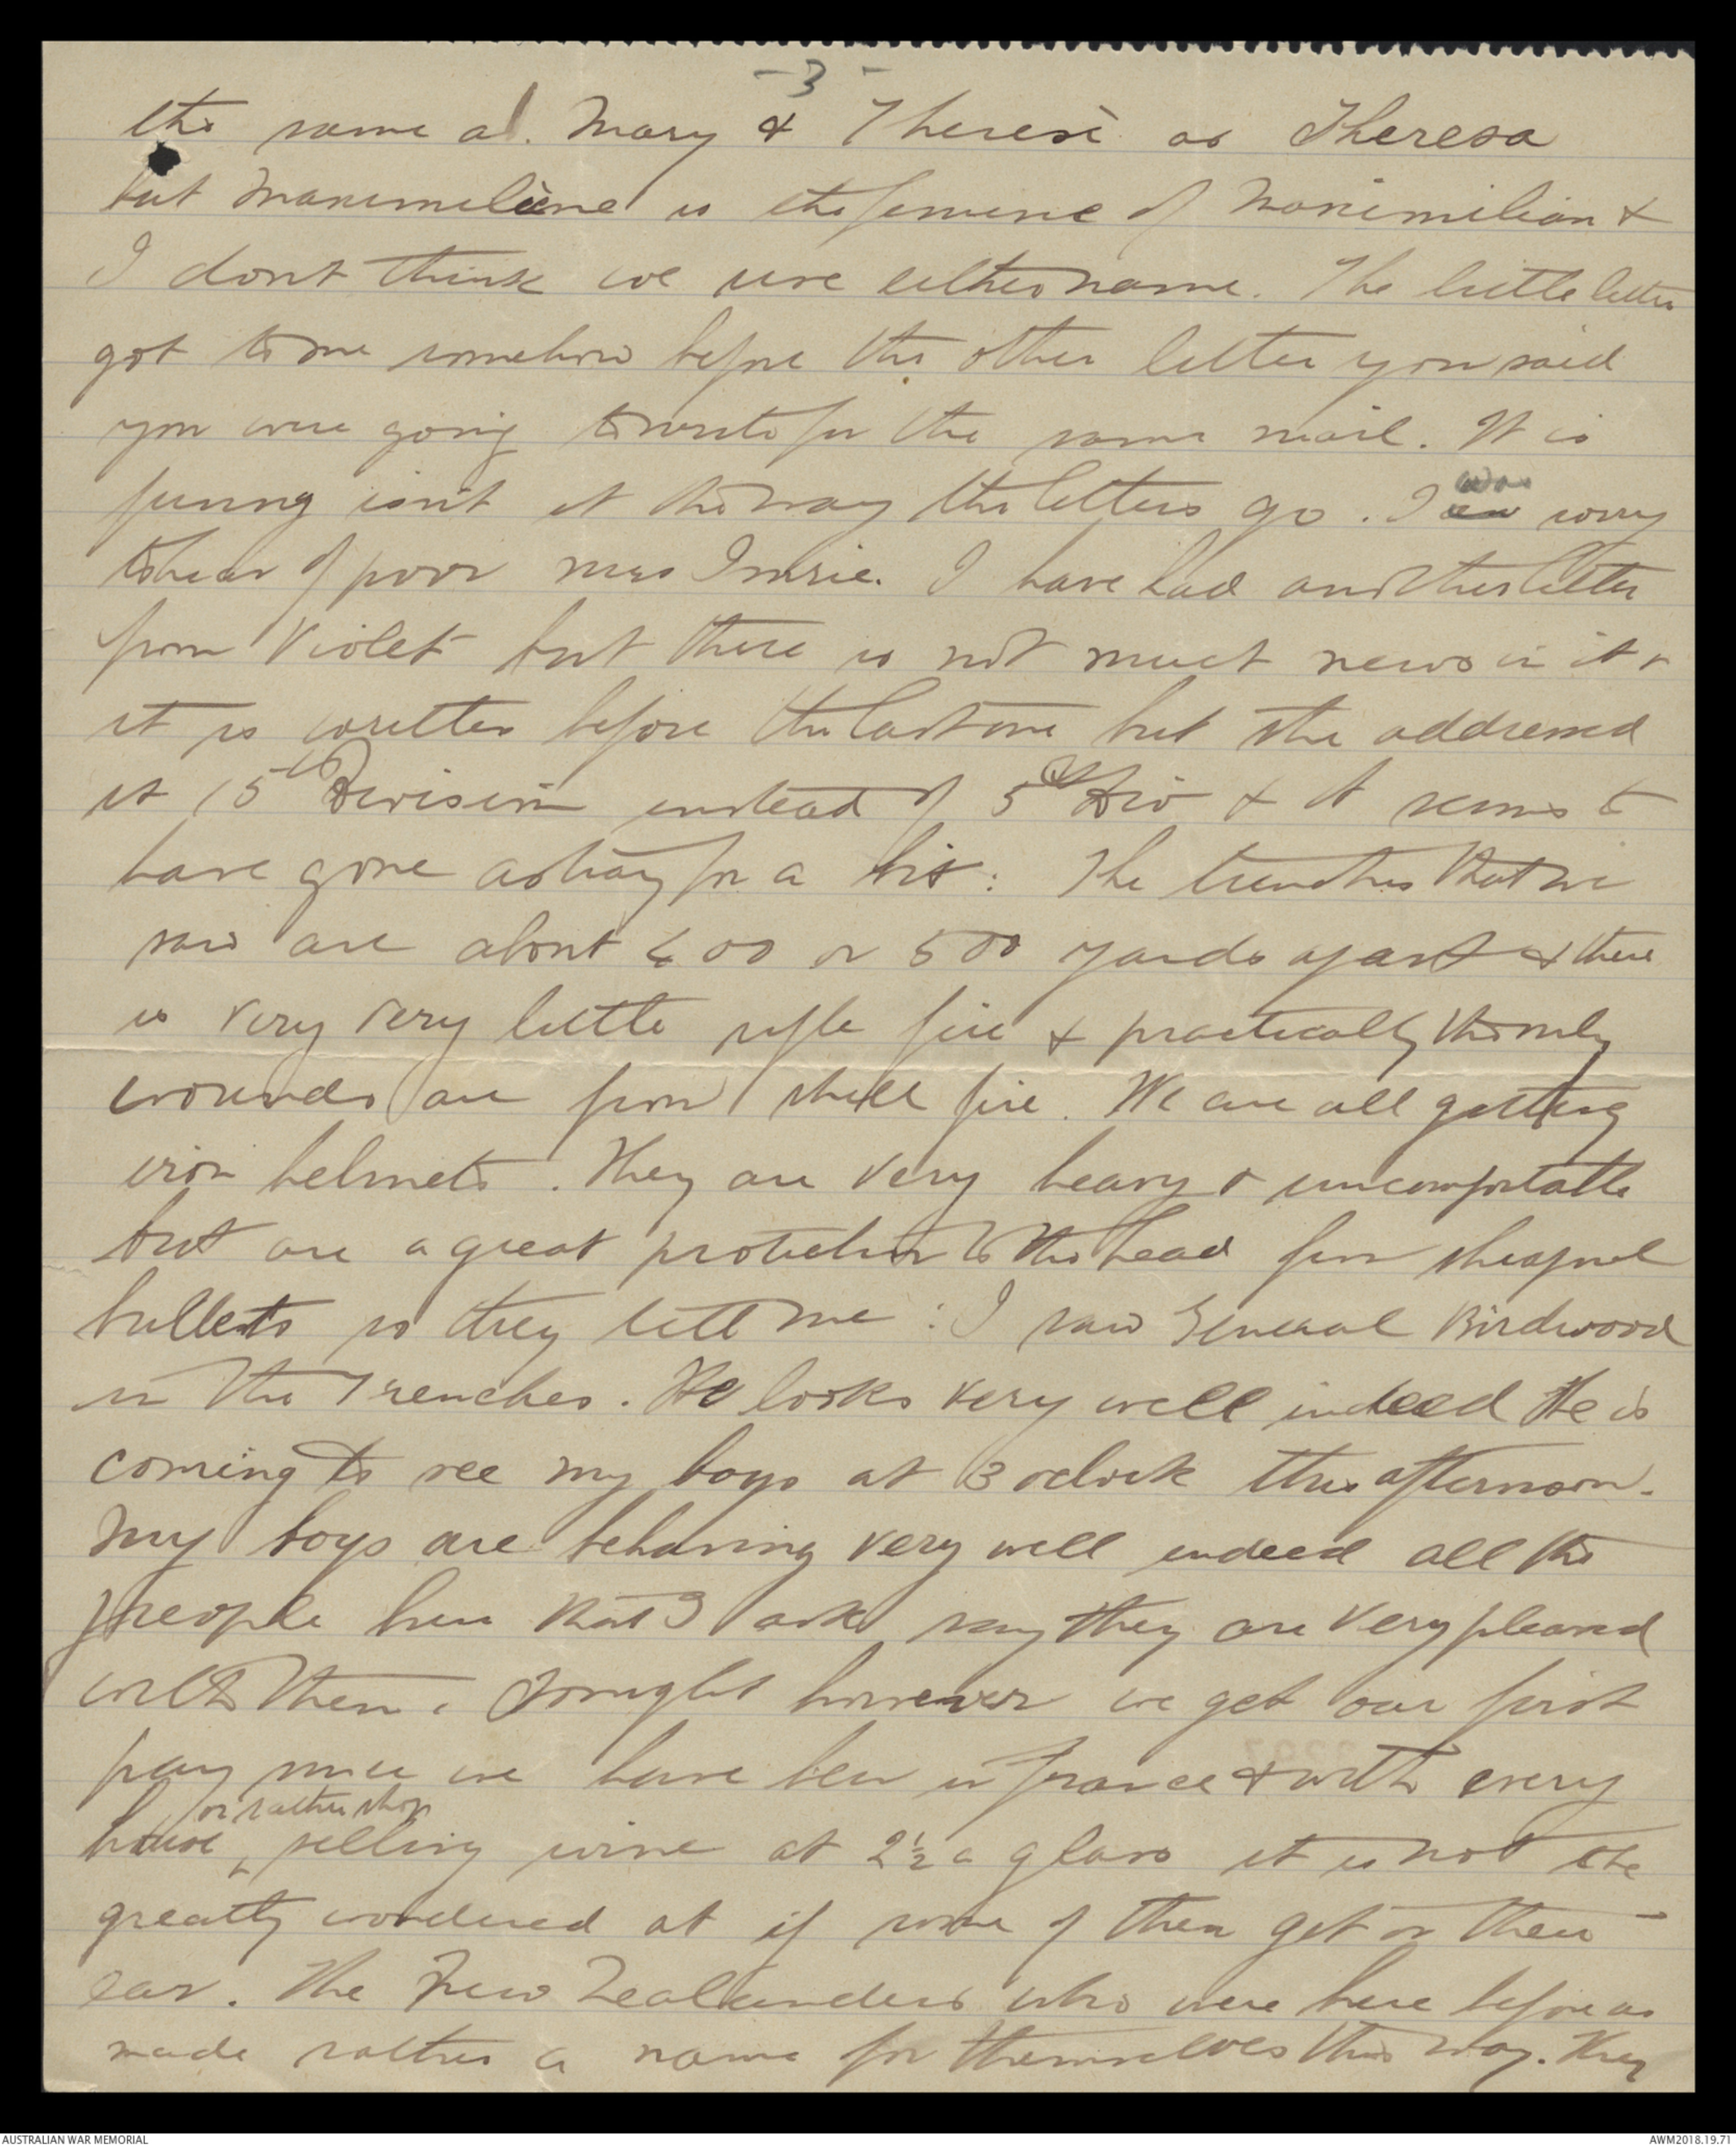 - 3 -
the same as Mary & Theresè as Theresa
but Maximeliène is the feminine of Maximilian &
I dont think we use either name. The little letter
got to me somehow before the other letter you said
you were going to write for the same mail. It is
funny isn't it the way the letters go. I was sorry
to hear of poor Mrs Imrie. I have had another letter
from Violet but there is not much news in it &
it is written before the last one but she addressed
it 15th Division instead of 5th Div & it seems to
have gone astray for a bit: The trenches that we
saw are about 400 or 500 yards apart & there
is very very little rifle fire & practically the only
wounds are from shell fire. We are all getting
iron helmets. They are very heavy & uncomfortable
but are a great protection to the head from shrapnel
bullets so they tell me: I saw General Birdwood
in the Trenches. He looks very well indeed He is
coming to see my boys at 3 oclock this afternoon.
My boys are behaving very well indeed all the
people here that I ask say they are very pleased
with them. Tonight however we get our first
pay since we have been in France & with every
house, or rather shop selling wine at 2½ a glass it is not to be
greatly wondered at if some of them get on their
ear. The New Zealanders who were here before us
made rather a name for themselves this way. They
AUSTRALIAN WAR MEMORIAL
AWM2018.19.71